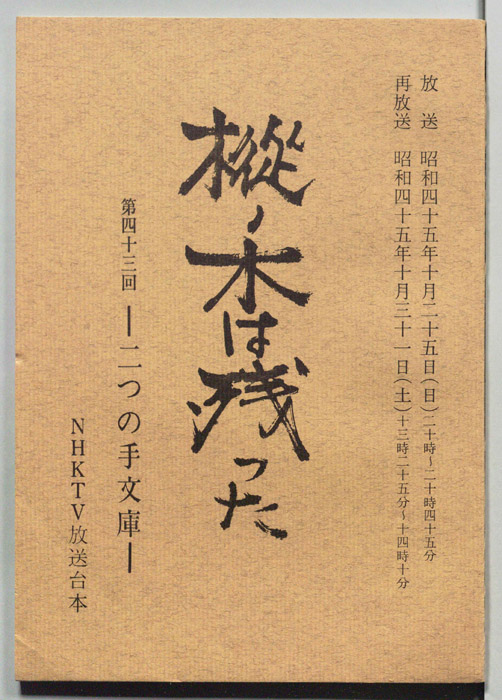 放送 昭和四十五年十月二十五日(日)二十時~二十時四十五分
再放送 昭和四十五年十月三十一日(土)十三時二十五分~十四時十分
樅ノ木は残った
第四十三回 ―二つの手文庫―
NHKTV放送台本